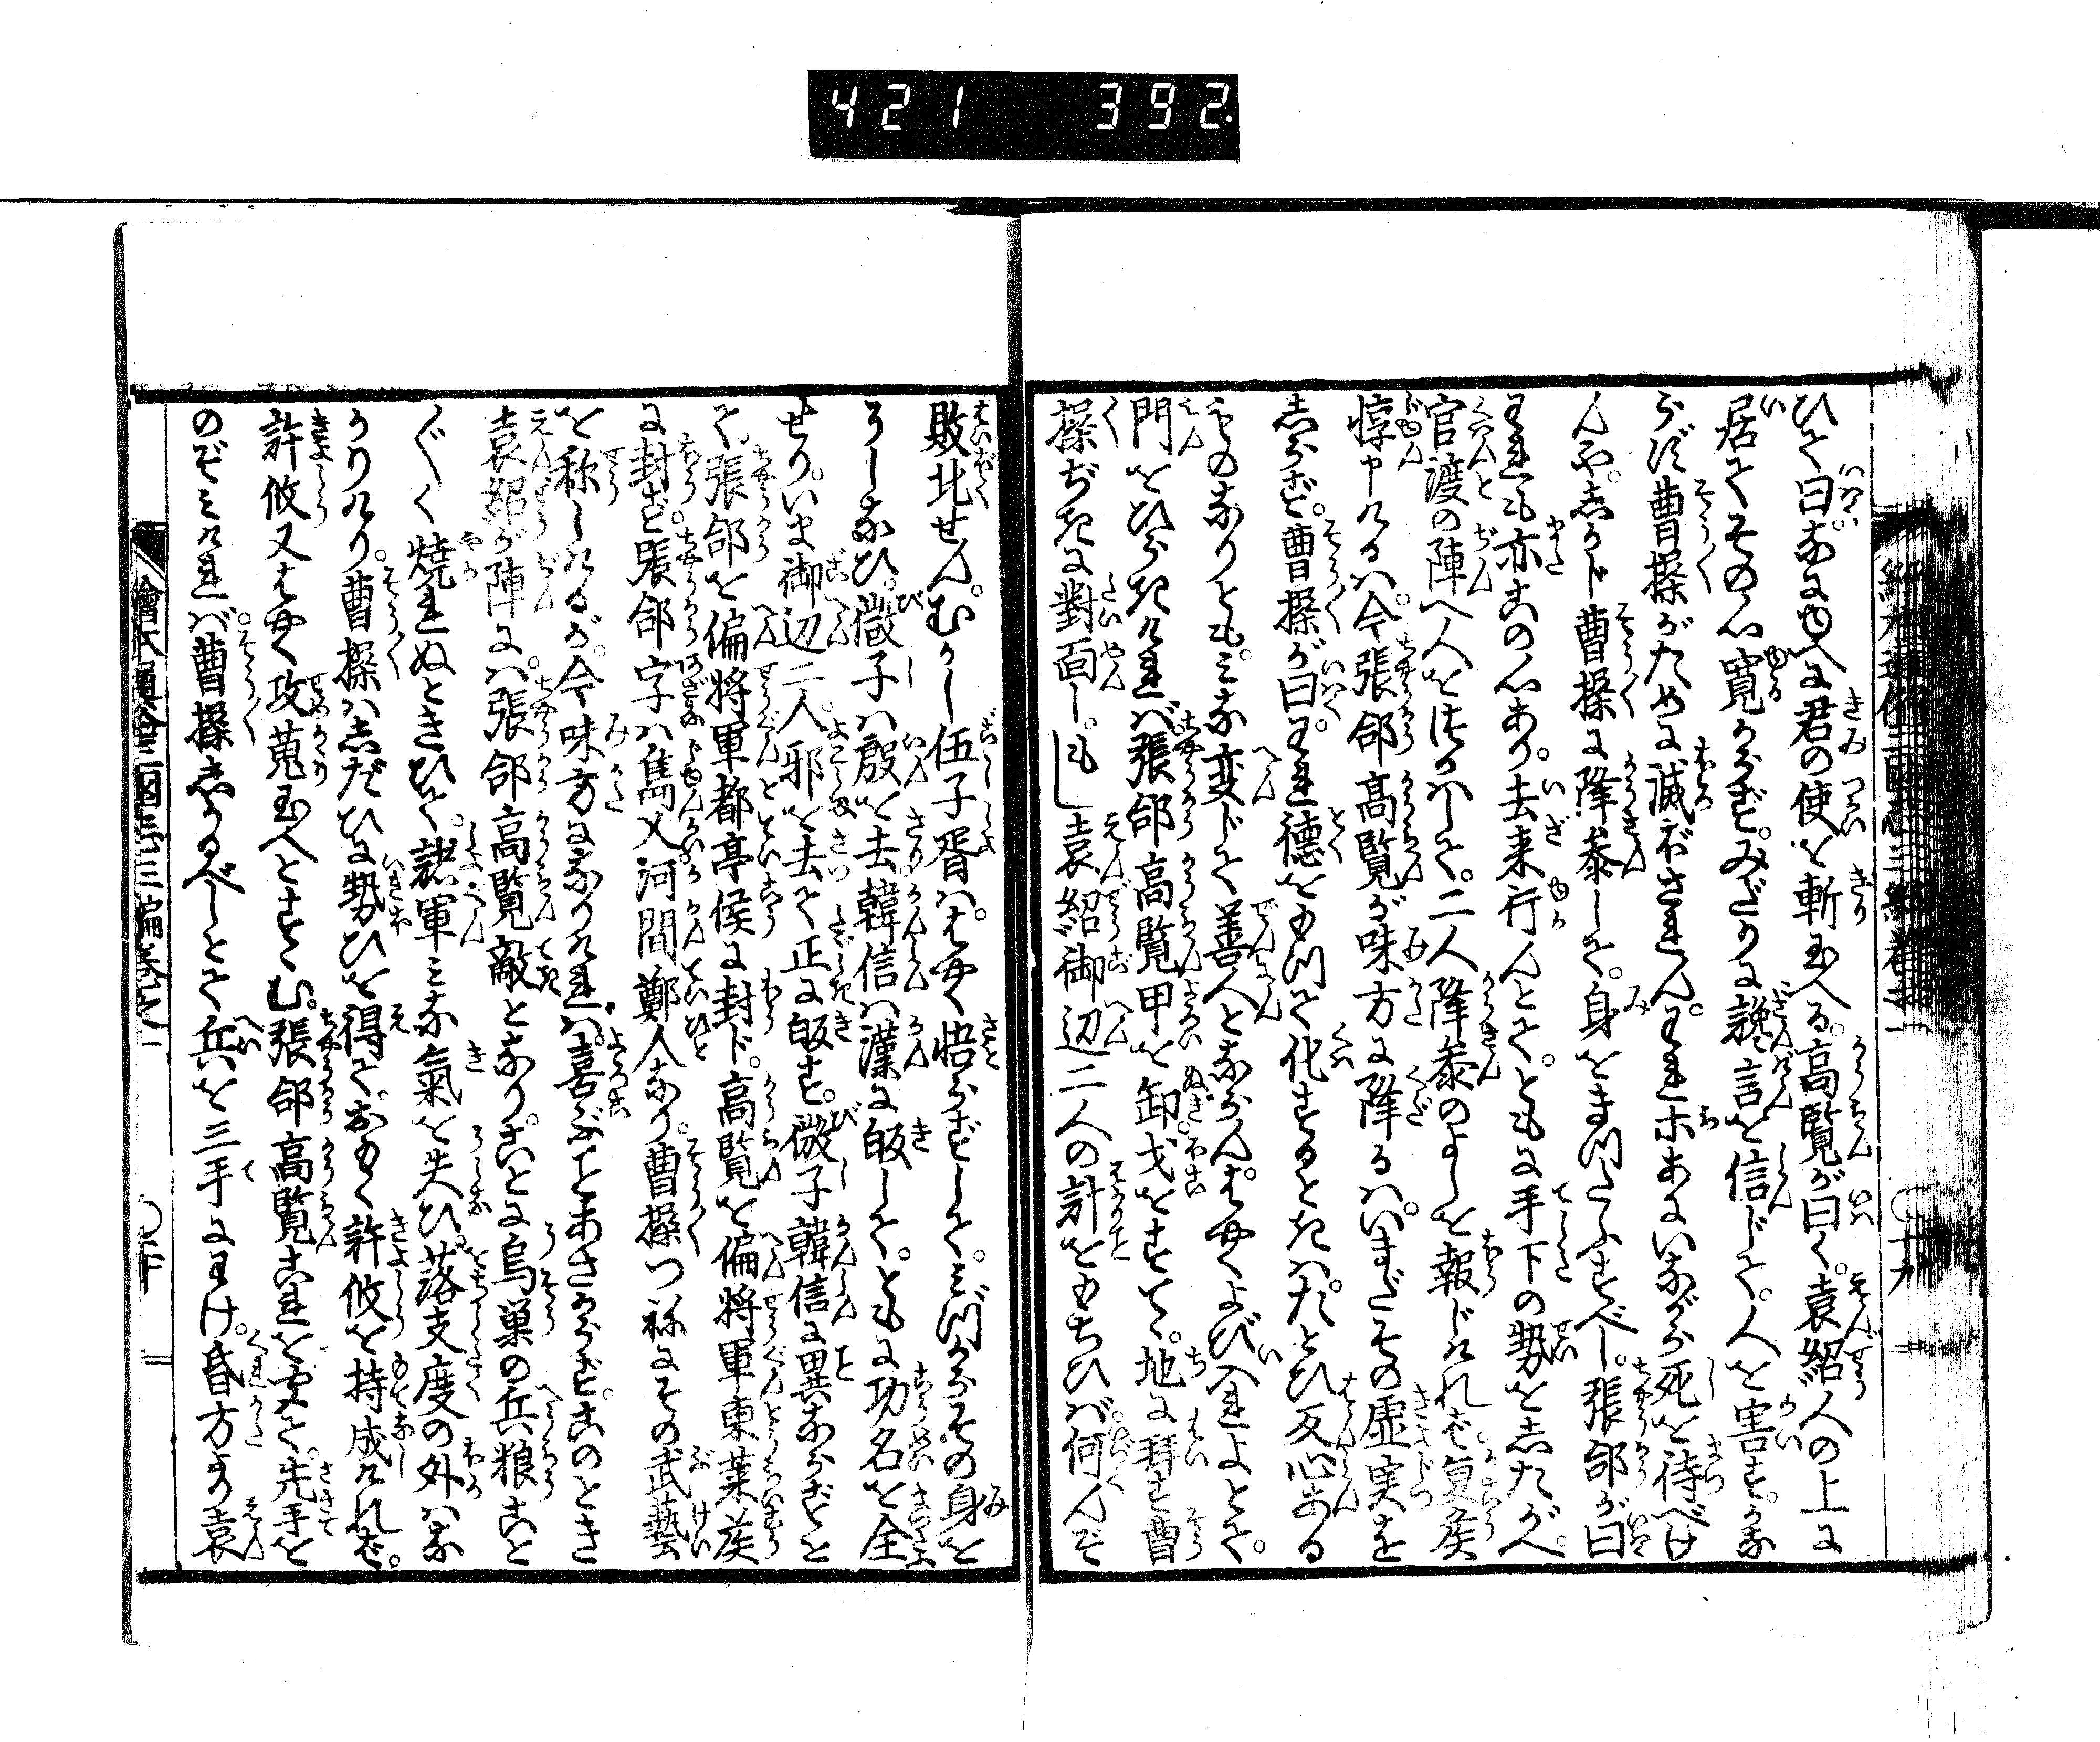 421 392.
ひて曰なにゆへに君の使を斬玉へる。高覧が曰く。袁紹人の上に
居てその心寛からず。みだりに讒言を信じて。人を害す。かな
らず曹操がために滅ぼされん。われホあにいながら死を待べけ
んや。しかじ曹操に降参して。身をまつたふすべし。張郃が曰
われも亦この心あり。去来行んとて。ともに手下の勢をしたがへ。
官渡の陣へ人をつかハして。二人降参のよしを報じければ。夏侯
惇申けるハ。今張郃高覧が味方に降るハ。いまだその虚実を
しらず。曹操が曰。われ徳をもつて化するときハ。たとひ反心ある
ものなりとも。ミな変じて善人とならん。はやくよび入れよとて。
門をひらきければ張郃高覧甲を卸戈をすてゝ。地に拜す曹
操ぢきに對面し。もし袁紹御辺二人の計をもちひバ。何んぞ
敗北せん。むかし伍子胥ハ。はやく悟らずして。ミづからその身を
うしなひ。微子ハ殷を去韓信ハ漢に皈して。ともに功名を全
せり。いま御辺二人。邪を去て正に皈す。微子韓信に異ならずと
て。張郃を偏将軍都亭侯に封ド。高覧を偏将軍東莱侯
に封ず。張郃字ハ雋乂河間鄭人なり。曹操つねにその武藝
を称しけるが。今味方になりけれバ。喜ぶことあさからず。このとき
袁紹が陣にハ張郃高覧敵となり。ことに烏巣の兵粮こと
〴〵く焼れぬときひて。諸軍ミな氣を失ひ。落支度の外ハな
かりけり。曹操ハしだひに勢ひを得て。おもく許攸を持成ければ。
許攸又はやく攻蒐玉へとすゝむ。張郃高覧これを聞て。先手を
のぞミけれバ。曹操しかるべしとて兵を三手にわけ。昏方より袁
繪本通俗三國志三編巻之一 〇二十